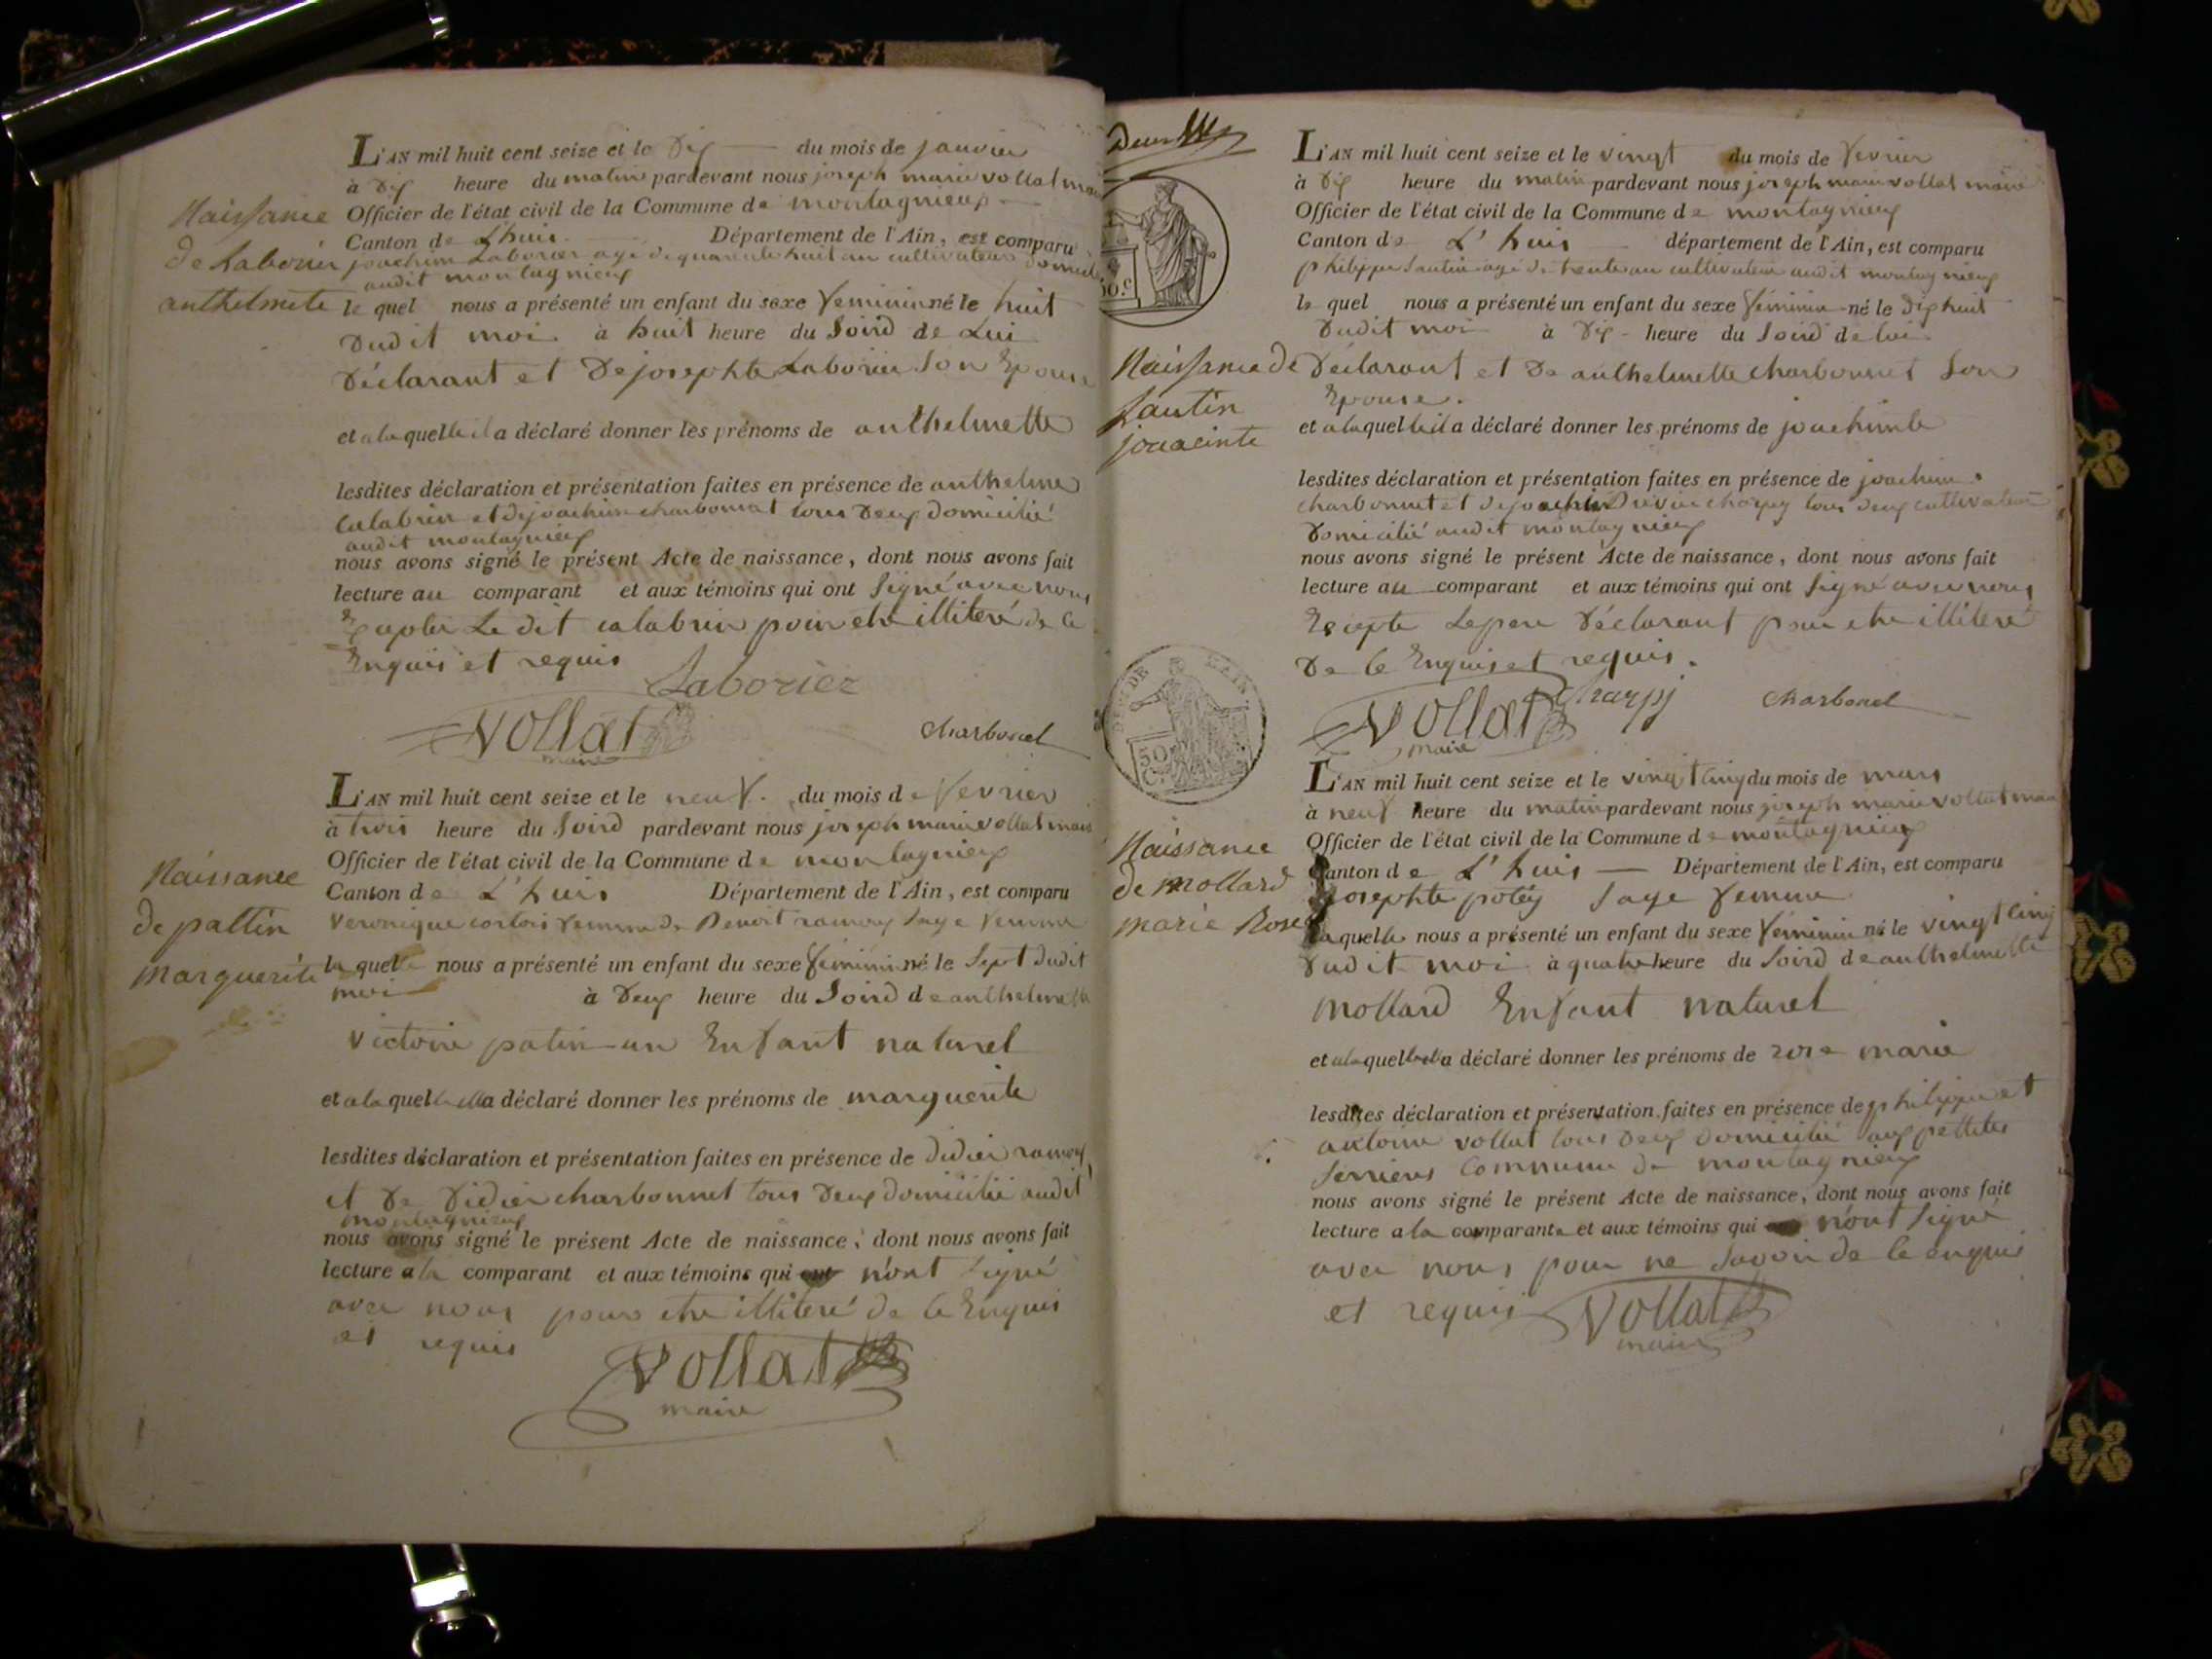 L'AN mil huit cent seize et le dix du mois de janvier
à dix heure du matin pardevant nous joseph marie vollat
Officier de l'état civil de la Commune de montagnieux
Canton de L'huis Département de l'Ain, est comparu
joachim Laborier agé de quarente huit an cultivateur
audit montagnieux
Naissance
de Laborier
anthelmete
le quel nous a présenté un enfant du sexe feminin né le huit
dudit moi à huit heure du Soird de Lui
déclarant et de josephte Laborier Son Epouse
et a laquelle il a déclaré donner les prénoms de anthelmette
lesdites déclaration et présentation faites en présence de anthelme
Calabrin et de joachim charbonnet tous deux domicilié
audit montagnieux
nous avons signé le présent Acte de naissance, dont nous avons fait
lecture au comparant et aux témoins qui ont Signé avec nous
Le dit calabrin pour etre illiteré de ce
Enquis et requis
Laborier
Vollat
maire
charbonel
L'AN mil huit cent seize et le neuf du mois de fevrier
à trois heure du Soird pardevant nous joseph marie vollat maire
Officier de l'état civil de la Commune de montagnieux
Canton de L'huis Département de l'Ain, est comparu
Veronique femme de Benoit ramoux Sage femme
Naissance
de pattin
marguerite
la quelle nous a présenté un enfant du sexe feminin né le Sept dudit
moi à deux heure du Soird de anthelmette
victoire patin un Enfant naturel
et a laquelle ella a déclaré donner les prénoms de marguerite
lesdites déclaration et présentation faites en présence de didier ramoux
et de didier charbonnet tous deux domicilié audit
montagnieux
nous avons signé le présent Acte de naissance, dont nous avons fait
lecture a la comparant et aux témoins qui n'ont Signé
avec nous pour etre illiteré de ce Enquis
et requis
Vollat
maire
10.c
DE L'AIN
50
C.
L'AN mil huit cent seize et le vingt du mois de fevrier
à dix heure du matin pardevant nous joseph marie vollat maire
Officier de l'état civil de la Commune de montagnieux
Canton de L'huis département de l'Ain, est comparu
philippe Sautin agé de trente an cultivateur audit montagnieux
le quel nous a présenté un enfant du sexe féminin né le dix huit
dudit moi à dix heure du Soird de lui
Naissance de
Sautin
déclarant et de anthelmette charbonnet Son
Epouse.
et a laquelle il a déclaré donner les prénoms de joachimte
lesdites déclaration et présentation faites en présence de joachim
charbonnet et de joachim tous deux cultivateur
domicilié audit montagnieux
nous avons signé le présent Acte de naissance, dont nous avons fait
lecture au comparant et aux témoins qui ont Signé avec nous
Excepte Le pere déclarant pour etre illiteré
de ce Enquis et requis.
Vollat
maire
charbonel
L'AN mil huit cent seize et le vingt cinq du mois de mars
à neuf heure du matin pardevant nous joseph marie vollat maire
Officier de l'état civil de la Commune de montagnieux
Canton de L'huis Département de l'Ain, est comparu
josephte poléy Sage femme
Naissance
de mollard
marie Rose
laquelle nous a présenté un enfant du sexe féminin né le vingt cinq
dudit moi à quatre heure du Soird de anthelmette
mollard Enfant naturel
et a laquelle ella a déclaré donner les prénoms de rose marie
lesdites déclaration et présentation faites en présence de philippe et
antoine vollat tous deux domicilié aux pettites
Serrieres Commune de montagnieux
nous avons signé le présent Acte de naissance, dont nous avons fait
lecture a la comparante et aux témoins qui n'ont Signé
avec nous pour ne Savoir de ce enquis
et requis
Vollat
maire